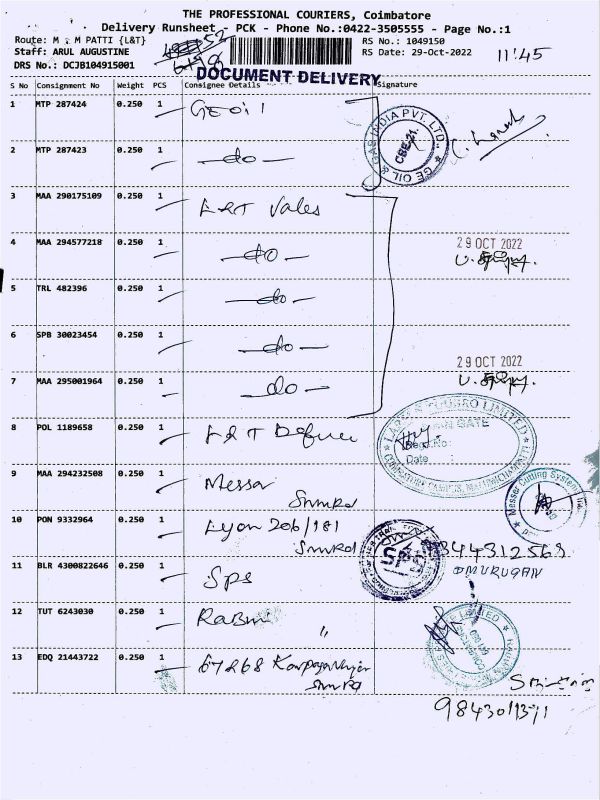 THE PROFESSIONAL COURIERS, Coimbatore
Delivery Runsheet - PCK - Phone No.:0422-3505555 - Page No.:1
Route: M . M PATTI {L&T}
RS No.: 1049150
Staff: ARUL AUGUSTINE
RS Date: 29-Oct-2022
11:45
DRS No.: DCJB104915001
DOCUMENT DELIVERY
S No Consignment No Weight PCS Consignee Details Signature
1 MTP 287424 0.250 1 GE oil
GE OIL & GAS INDIA PVT. LTD., CBE-21.
2 MTP 287423 0.250 1 -do-
3 MAA 290175109 0.250 1 L&T Vales
4 MAA 294577218 0.250 1 -do-
29 OCT 2022
5 TRL 482396 0.250 1 -do-
6 SPB 30023454 0.250 1 -do-
29 OCT 2022
7 MAA 295001964 0.250 1 -do-
8 POL 1189658 0.250 1 L&T Defence
LARSEN & TOUBRO LIMITED
MAIN GATE
Regd. No:
Date :
9 MAA 294232508 0.250 1 Messer
SNMRd
Messer Cutting Systems
10 PON 9332964 0.250 1 Lyon 206/181
SNMRd
9344312568
11 BLR 4300822646 0.250 1 SPS
SPS
MURUGAN
12 TUT 6243030 0.250 1
13 EDQ 21443722 0.250 1 67268
SNMRd
9843011371